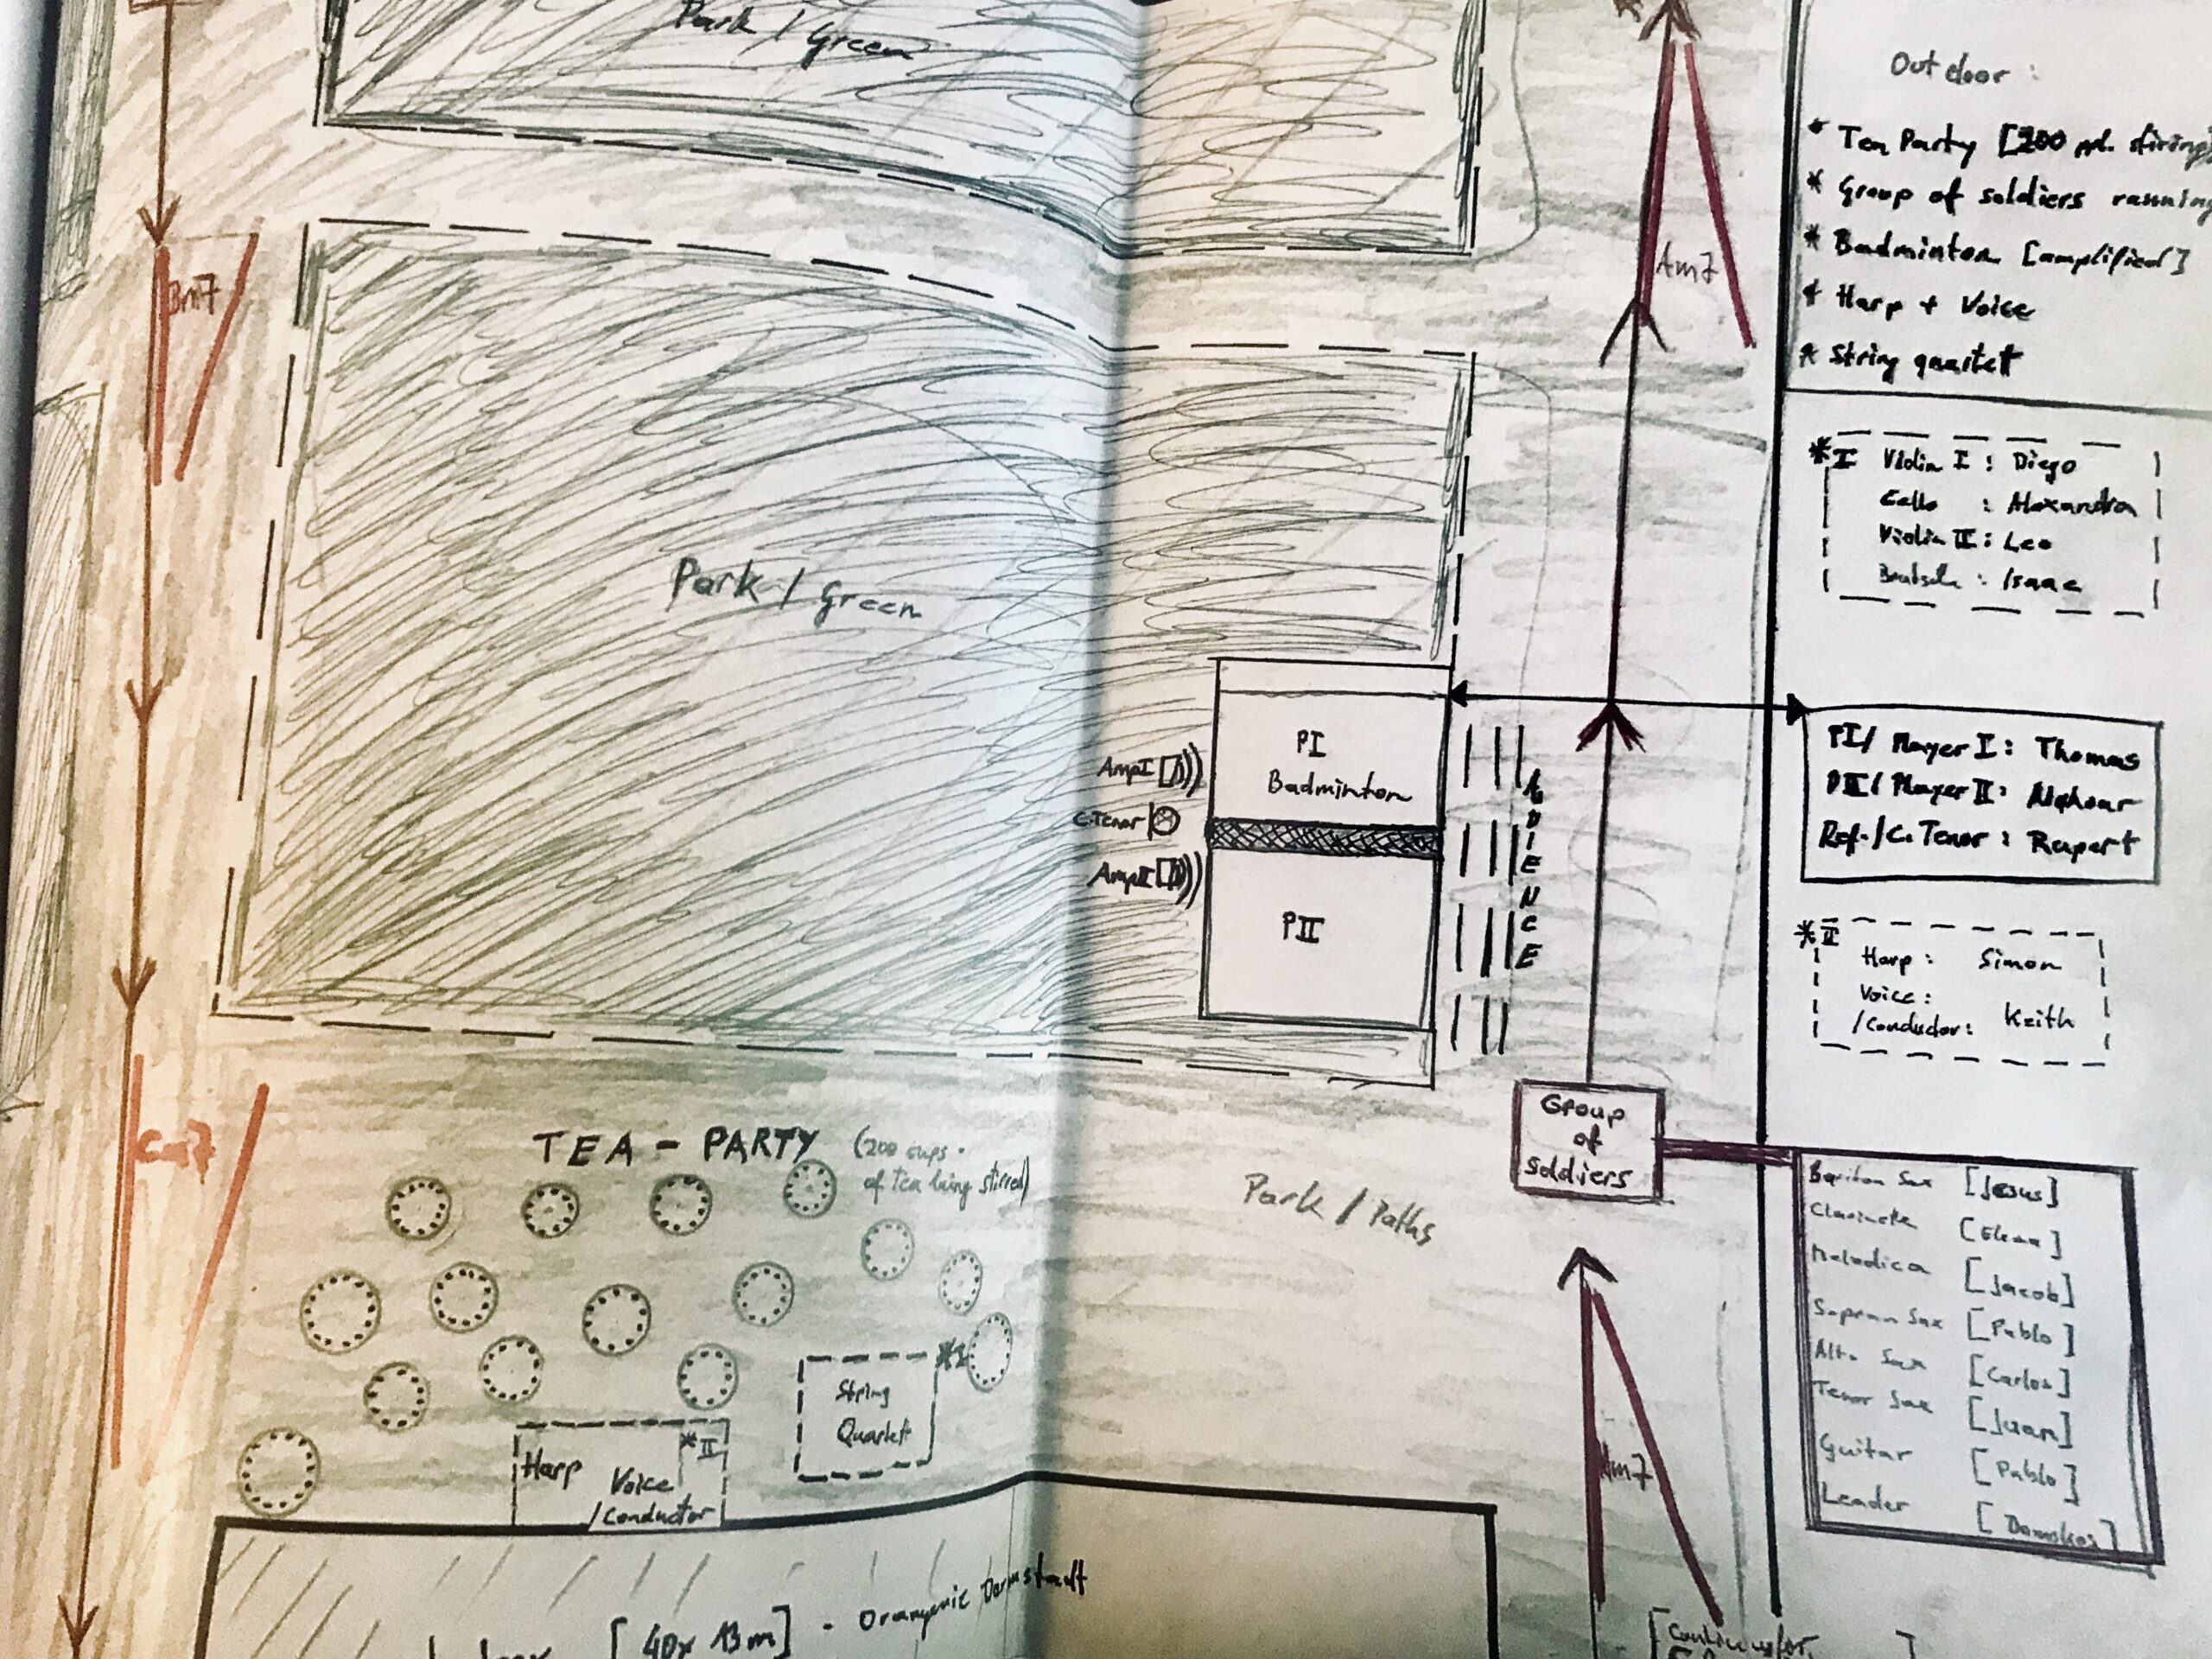 Park / Green
Bm7
Park / Green
Am7
Outdoor :
* Tea Party [200 ppl. stirring
* Group of soldiers running
* Badminton [amplified]
* Harp + Voice
* String quartet
*I Violin I : Diego
Cello : Alexandra
Violin II : Leo
: Isaac
PI
Badminton
Amp I
C.Tenor
Amp II
PII
AUDIENCE
PI/ Player I : Thomas
PII/ Player II :
Ref./C. Tenor : Rupert
*II
Harp : Simon
Voice :
/Conductor : Keith
Cm7
TEA - PARTY (200 cups
of tea being stirred)
Park / Paths
Group
of
soldiers
Bariton Sax [Jesus]
Clarinette
Melodica [Jacob]
Sopran Sax [Pablo]
Alto Sax [Carlos]
Tenor Sax [Juan]
Guitar [Pablo]
Leader
*I
String
Quartett
*II
Harp Voice
/Conductor
Am7
[40x13m] - Orangerie Darmstadt